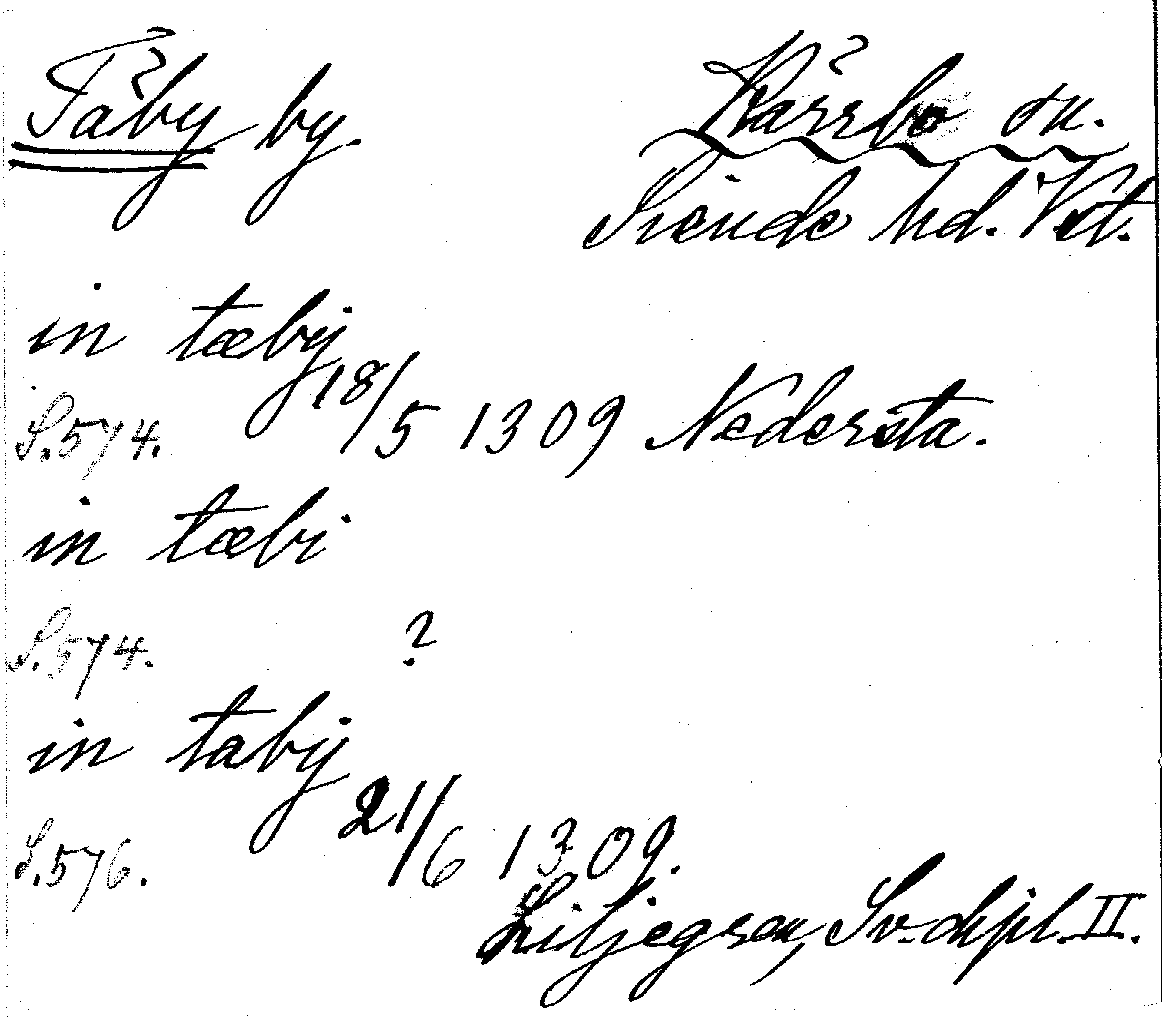 Täby by. Kärrbo sn.
Siende hd. Vstm.
in tæby
S.574. 18/5 1309 Nedersta.
in tæbi
S.574. ?
in tæbij
S.576. 21/6 1309.
Liljegren, Sv. dipl. II.